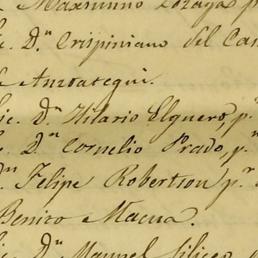 Maximino Lozaya p
ic. D.n Crispiniano del Cas
e Anzoategui.
Lic. D.n Hilario Elguero, p.r
c. D.n Cornelio Prado, p.r
D.n Felipe Robertson p.r
Benito Macua.
ic. D.n Manuel Siliceo